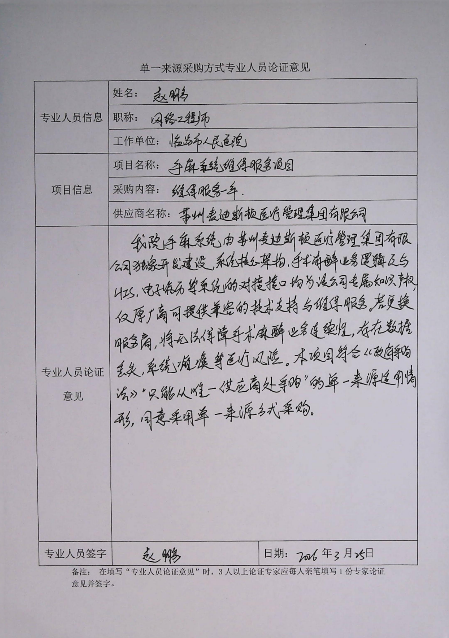 单一来源采购方式专业人员论证意见
专业人员信息
姓名： 赵鹏
职称： 网络工程师
工作单位： 临汾市人民医院
项目信息
项目名称： 手麻系统维保服务项目
采购内容： 维保服务一年
供应商名称： 苏州麦迪斯顿医疗管理集团有限公司
专业人员论证
意见
我院手麻系统由苏州麦迪斯顿医疗管理集团有限
公司独家开发建设，系统核心架构，手术麻醉业务逻辑及与
HIS，电子病历等系统的对接接口均为该公司专属知识产权，
仅原厂商可提供兼容的技术支持与维保服务。若更换
服务商，将无法保障手术麻醉业务连续性，存在数据
丢失，系统瘫痪等运行风险。本项目符合《政府采购
法》"只能从唯一供应商处采购"的单一来源适用情
形，同意采用单一来源方式采购。
专业人员签字
赵鹏
日期： 2026年3月25日
备注： 在填写"专业人员论证意见"时，3人以上论证专家应每人亲笔填写1份专家论证
意见并签字。